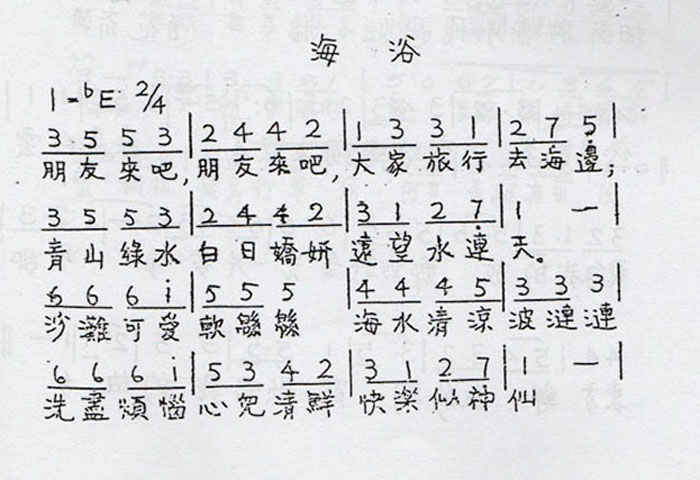 海 浴
1=ᵇE 2/4
3 5 5 3 | 2 4 4 2 | 1 3 3 1 | 2 7 5 |
朋友來吧,朋友來吧,大家旅行去海邊;
3 5 5 3 | 2 4 4 2 | 3 1 2 7 | 1 — |
青山綠水白日嬌妍遠望水連天。
6 6 6 i | 5 5 5 | 4 4 4 5 | 3 3 3 |
沙灘可愛軟緜緜 海水清涼波漣漣
6 6 6 i | 5 3 4 2 | 3 1 2 7 | 1 — |
洗盡煩惱心兒清鮮快樂似神仙